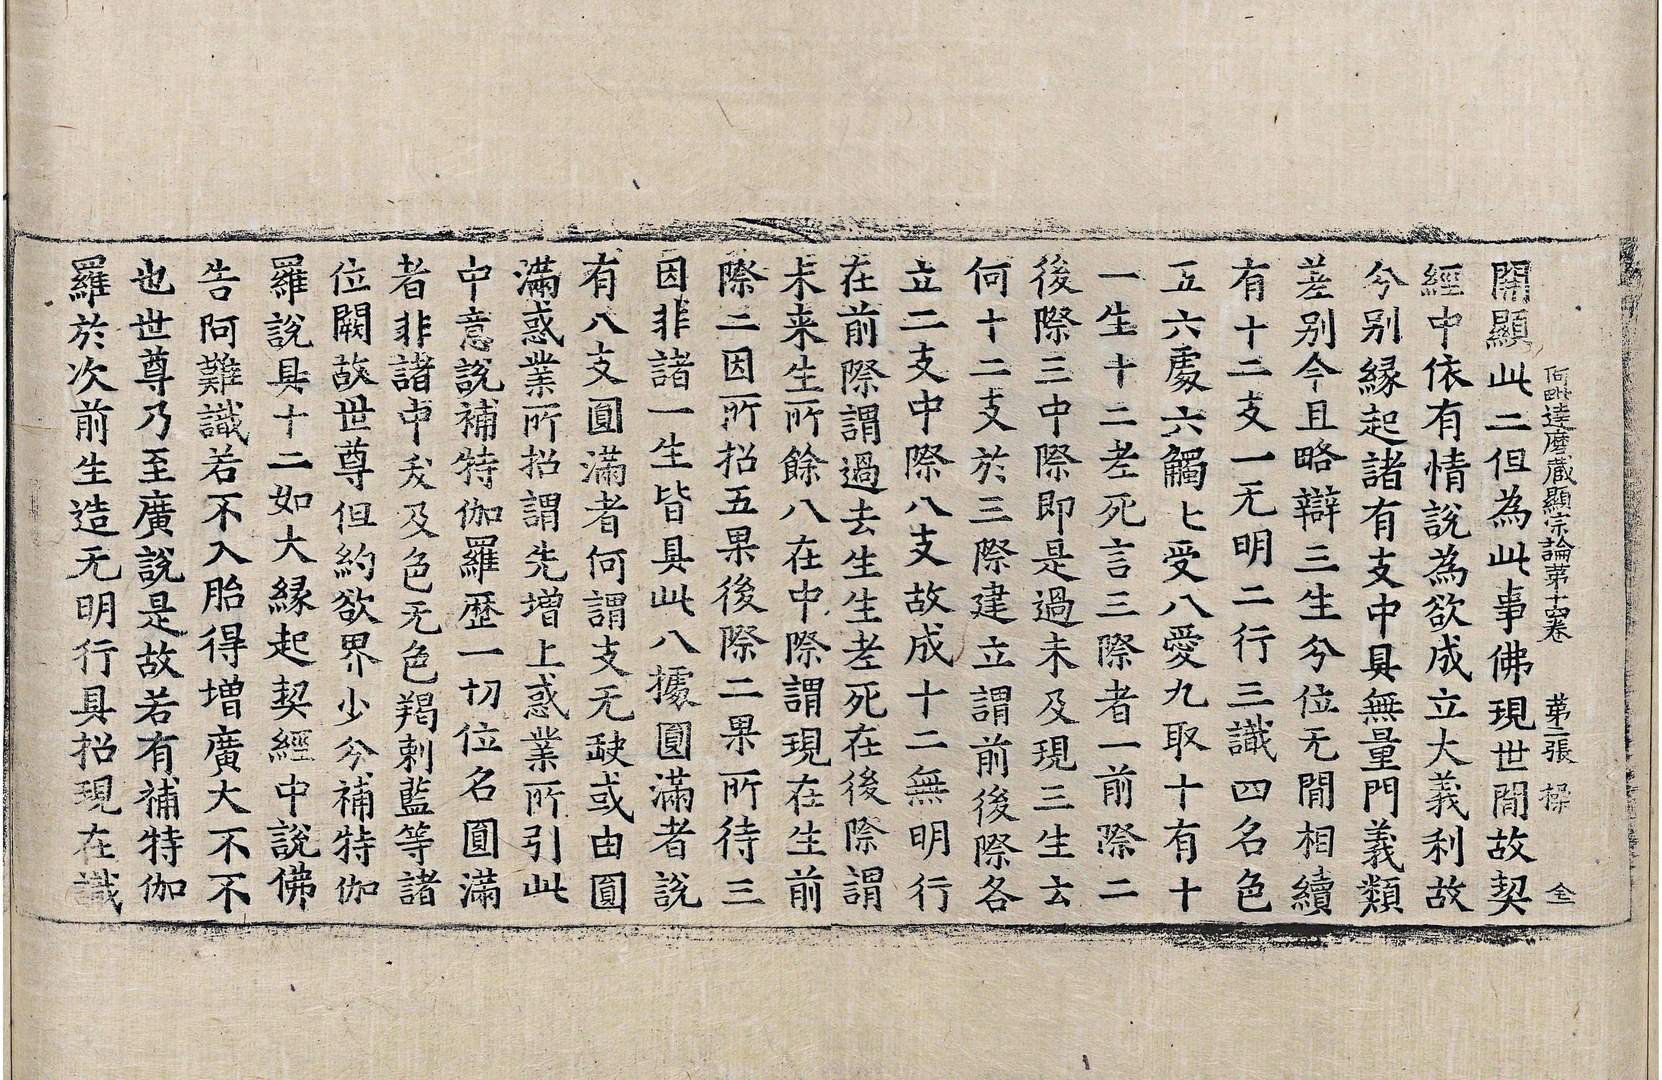 阿毗達磨藏顯宗論苐十四卷 苐二張 操
開顯此二但為此事佛現世閒故契
經中依有情說為欲成立大義利故
兮别縁起諸有支中具無量門義類
差别今且略辯三生兮位无閒相續
有十二支一无明二行三識四名色
五六處六觸七受八愛九取十有十
一生十二老死言三際者一前際二
後際三中際即是過未及現三生云
何十二支於三際建立謂前後際各
立二支中際八支故成十二無明行
在前際謂過去生生老死在後際謂
未来生所餘八在中際謂現在生前
際二因所招五果後際二果所待三
因非諸一生皆具此八據圓滿者說
有八支圓滿者何謂支无缺或由圓
滿惑業所招謂先增上惑業所引此
中意說補特伽羅歷一切位名圓滿
者非諸中夭及色无色羯剌藍等諸
位闕故世尊但約欲界少兮補特伽
羅說具十二如大縁起契經中說佛
告阿難識若不入胎得增廣大不不
也世尊乃至廣說是故若有補特伽
羅於次前生造无明行具招現在識